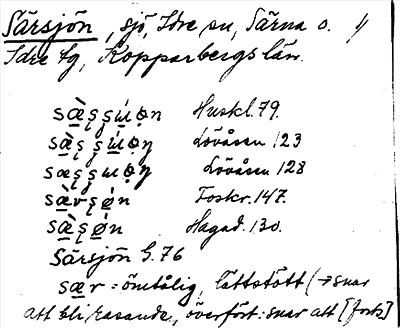 Särsjön, sjö, Idre sn, Särna o. 4
Idre tg, Kopparbergs län.
Huskl. 79.
Lövåsen 123
Lövåsen 128
Foskr. 147.
Hagad. 130.
Särsjön G. 76
sær = ömtålig, lättstött (→ snar
att bli rasande, överfört: snar att [forts]